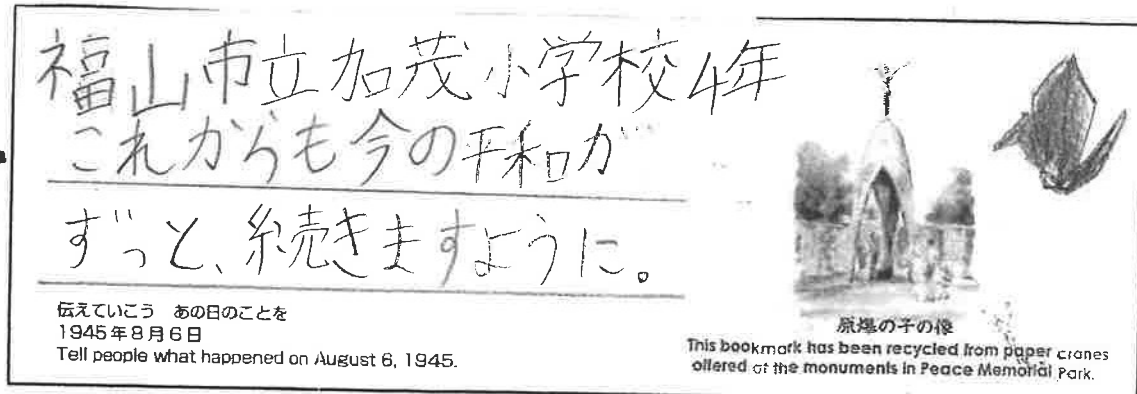 福山市立加茂小学校4年
これからも今の平和が
ずっと、続きますように。
伝えていこう　あの日のことを
1945年8月6日
Tell people what happened on August 6, 1945.
原爆の子の像
This bookmark has been recycled from paper cranes
offered at the monuments in Peace Memorial Park.